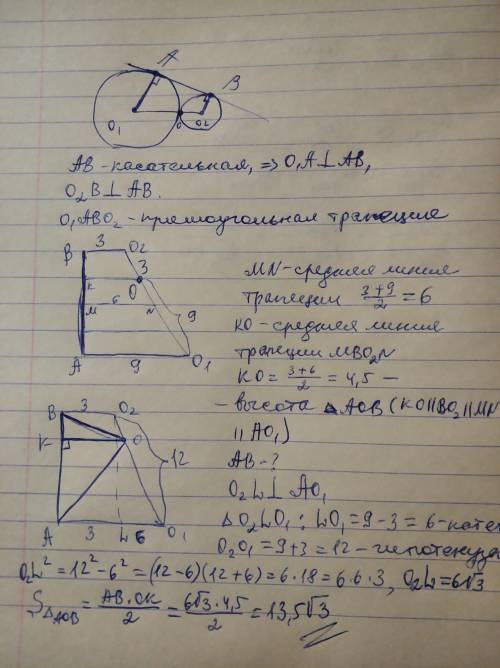 A
B
O₁
O
O₂
AB - касательная, => O₁A⊥AB,
O₂B⊥AB.
O₁ABO₂ - прямоугольная трапеция
B 3 O₂
K 3
O
M 6 N 9
A 9 O₁
MN - средняя линия
трапеции 3+9/2 = 6
KO - средняя линия
трапеции MBO₂N
KO = 3+6/2 = 4,5 -
- высота △AOB (KO||BO₂||MN
||AO₁)
B 3 O₂
K O 12
A 3 L 6 O₁
AB - ?
O₂L⊥AO₁
△O₂LO₁: LO₁ = 9-3 = 6 - катет
O₂O₁ = 9+3 = 12 - гипотенуза
O₂L² = 12² - 6² = (12-6)(12+6) = 6·18 = 6·6·3, O₂L = 6√3
S△AOB = AB·OK/2 = 6√3·4,5/2 = 13,5√3